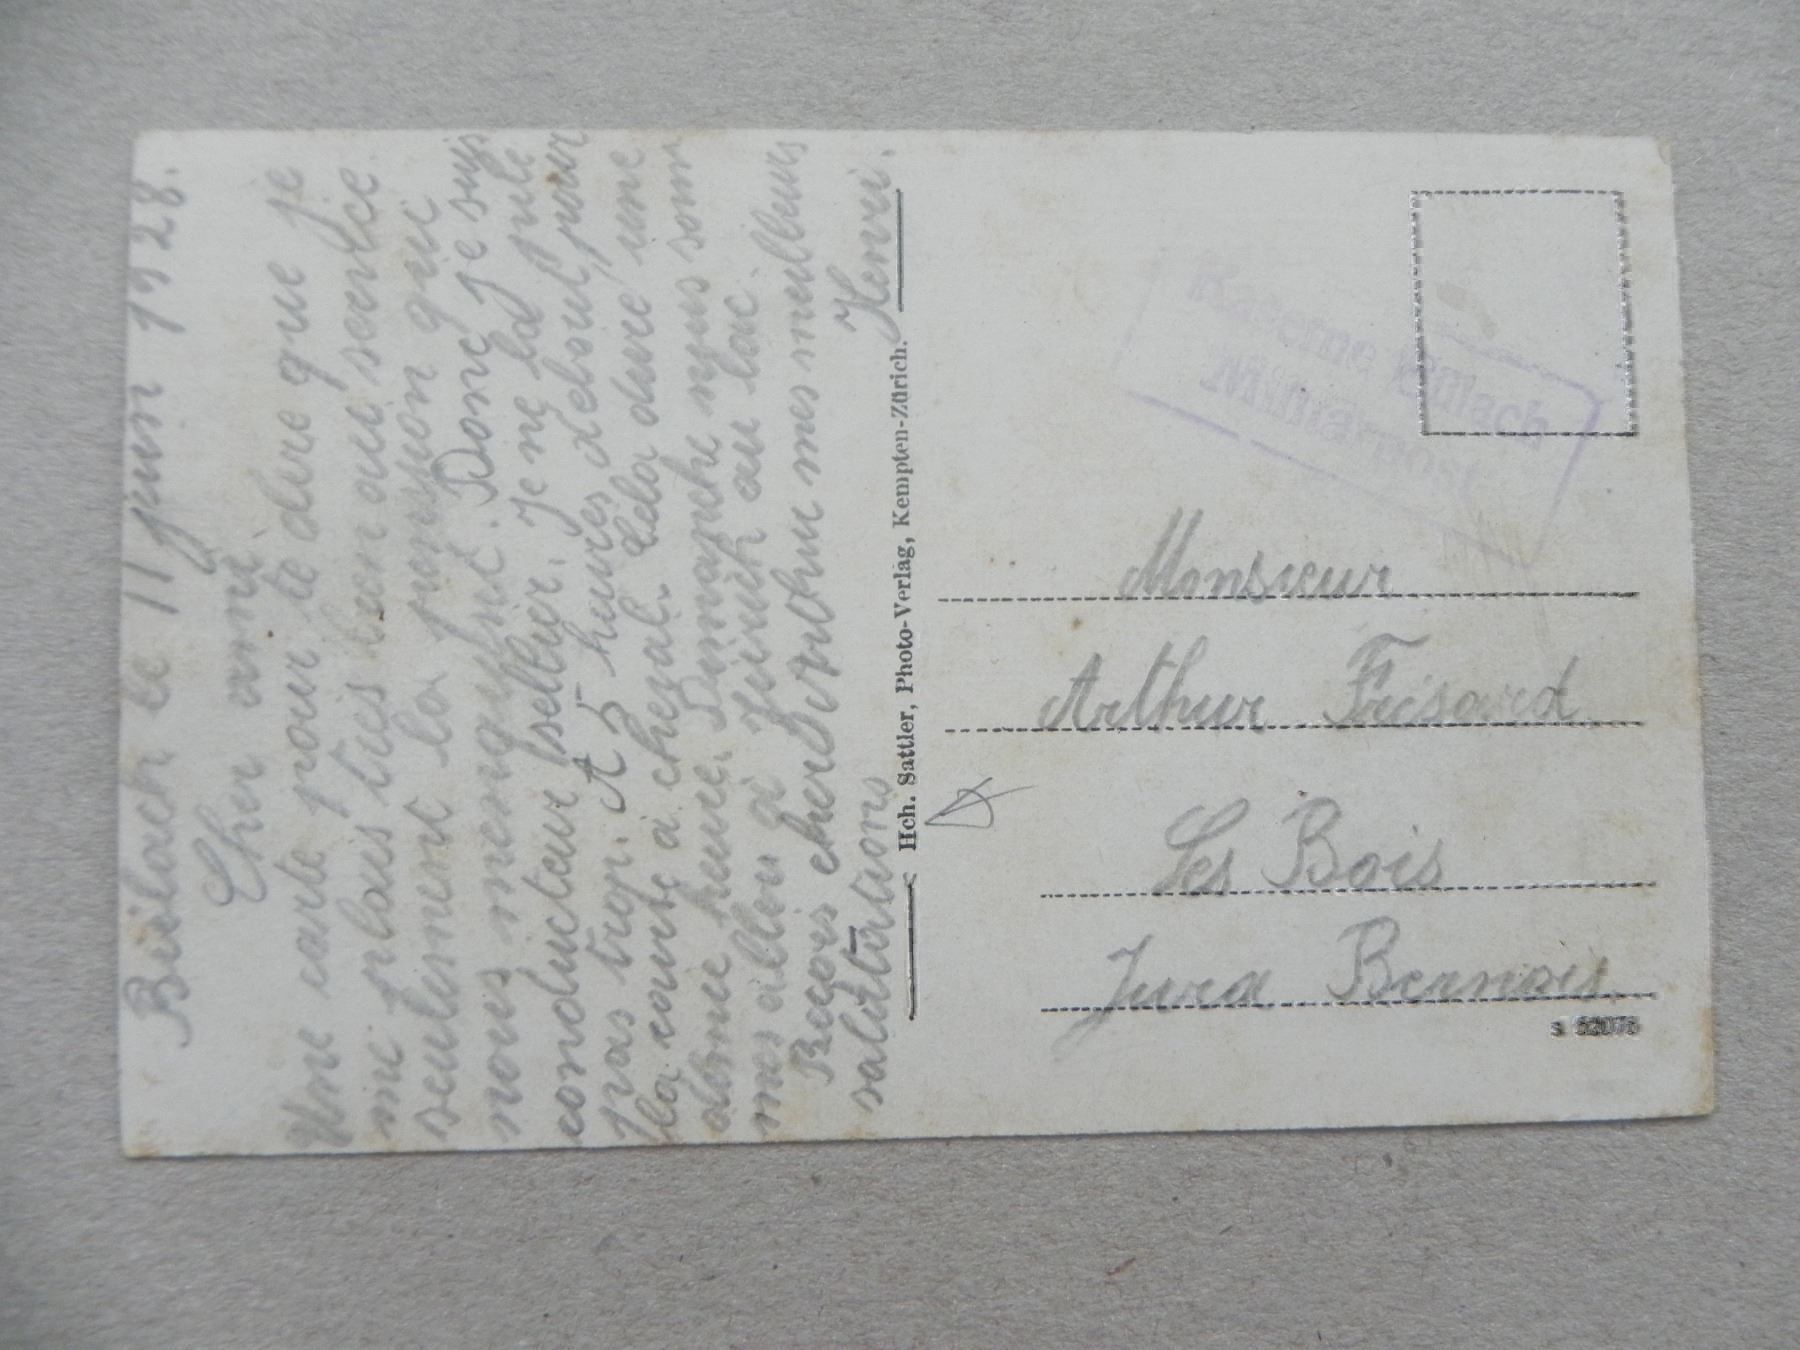 Bülach le 11 juin 1928.
Cher ami.
Une carte pour te dire que je
me plais très bien au service
seulement la pension que
nous menquyhst. Donc je suis
conducteur (sellier. Je ne la pile
pas trop. A 5 heures debout, pour
la course à cheval. Cela dure une
demie heure. Dimanche nous som
mes allou à Zürich au lac.
Reçois cher Arthur mes meilleurs
salutations Henri.
Hch. Sattler, Photo-Verlag, Kempten-Zürich.
Kaserne Bülach
Militärpost
Monsieur
Arthur Frésard
Les Bois
Jura Bernois.
s 52075